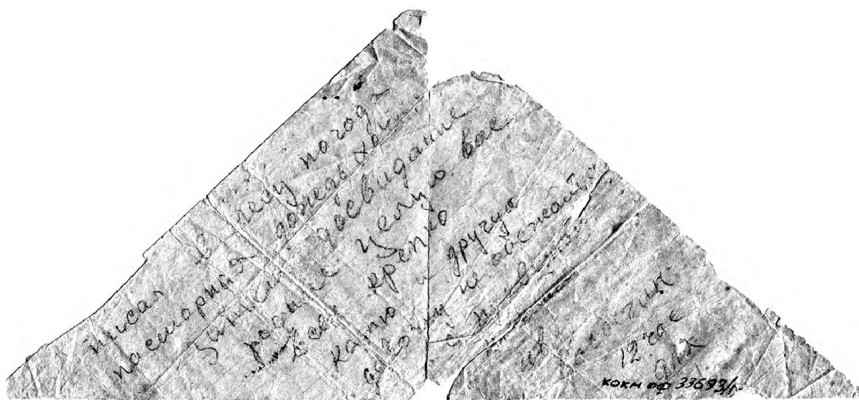 писал в лесу погода
пасморная дождь
затем досвидание
родные целую вас
всех крепко
Катю и другую
дочку не обежайте
12 час
дня
КОКМ ОФ 33693/1